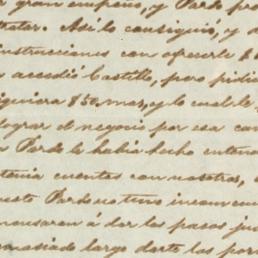 gran empeño, y Pardo pro
tratar. Así lo consiguió, y d
instrucciones con ofrecerle $
n accedió Castillo, pero pidie
iquiera $50, mas, y lo cual le
lograr el negocio por esa can
n Pardo le había hecho entend
tenia cuentas con nosotras,
esto Pardo no tuvo inconven
menzaran á dar los pasos ju
masiado largo darte los por